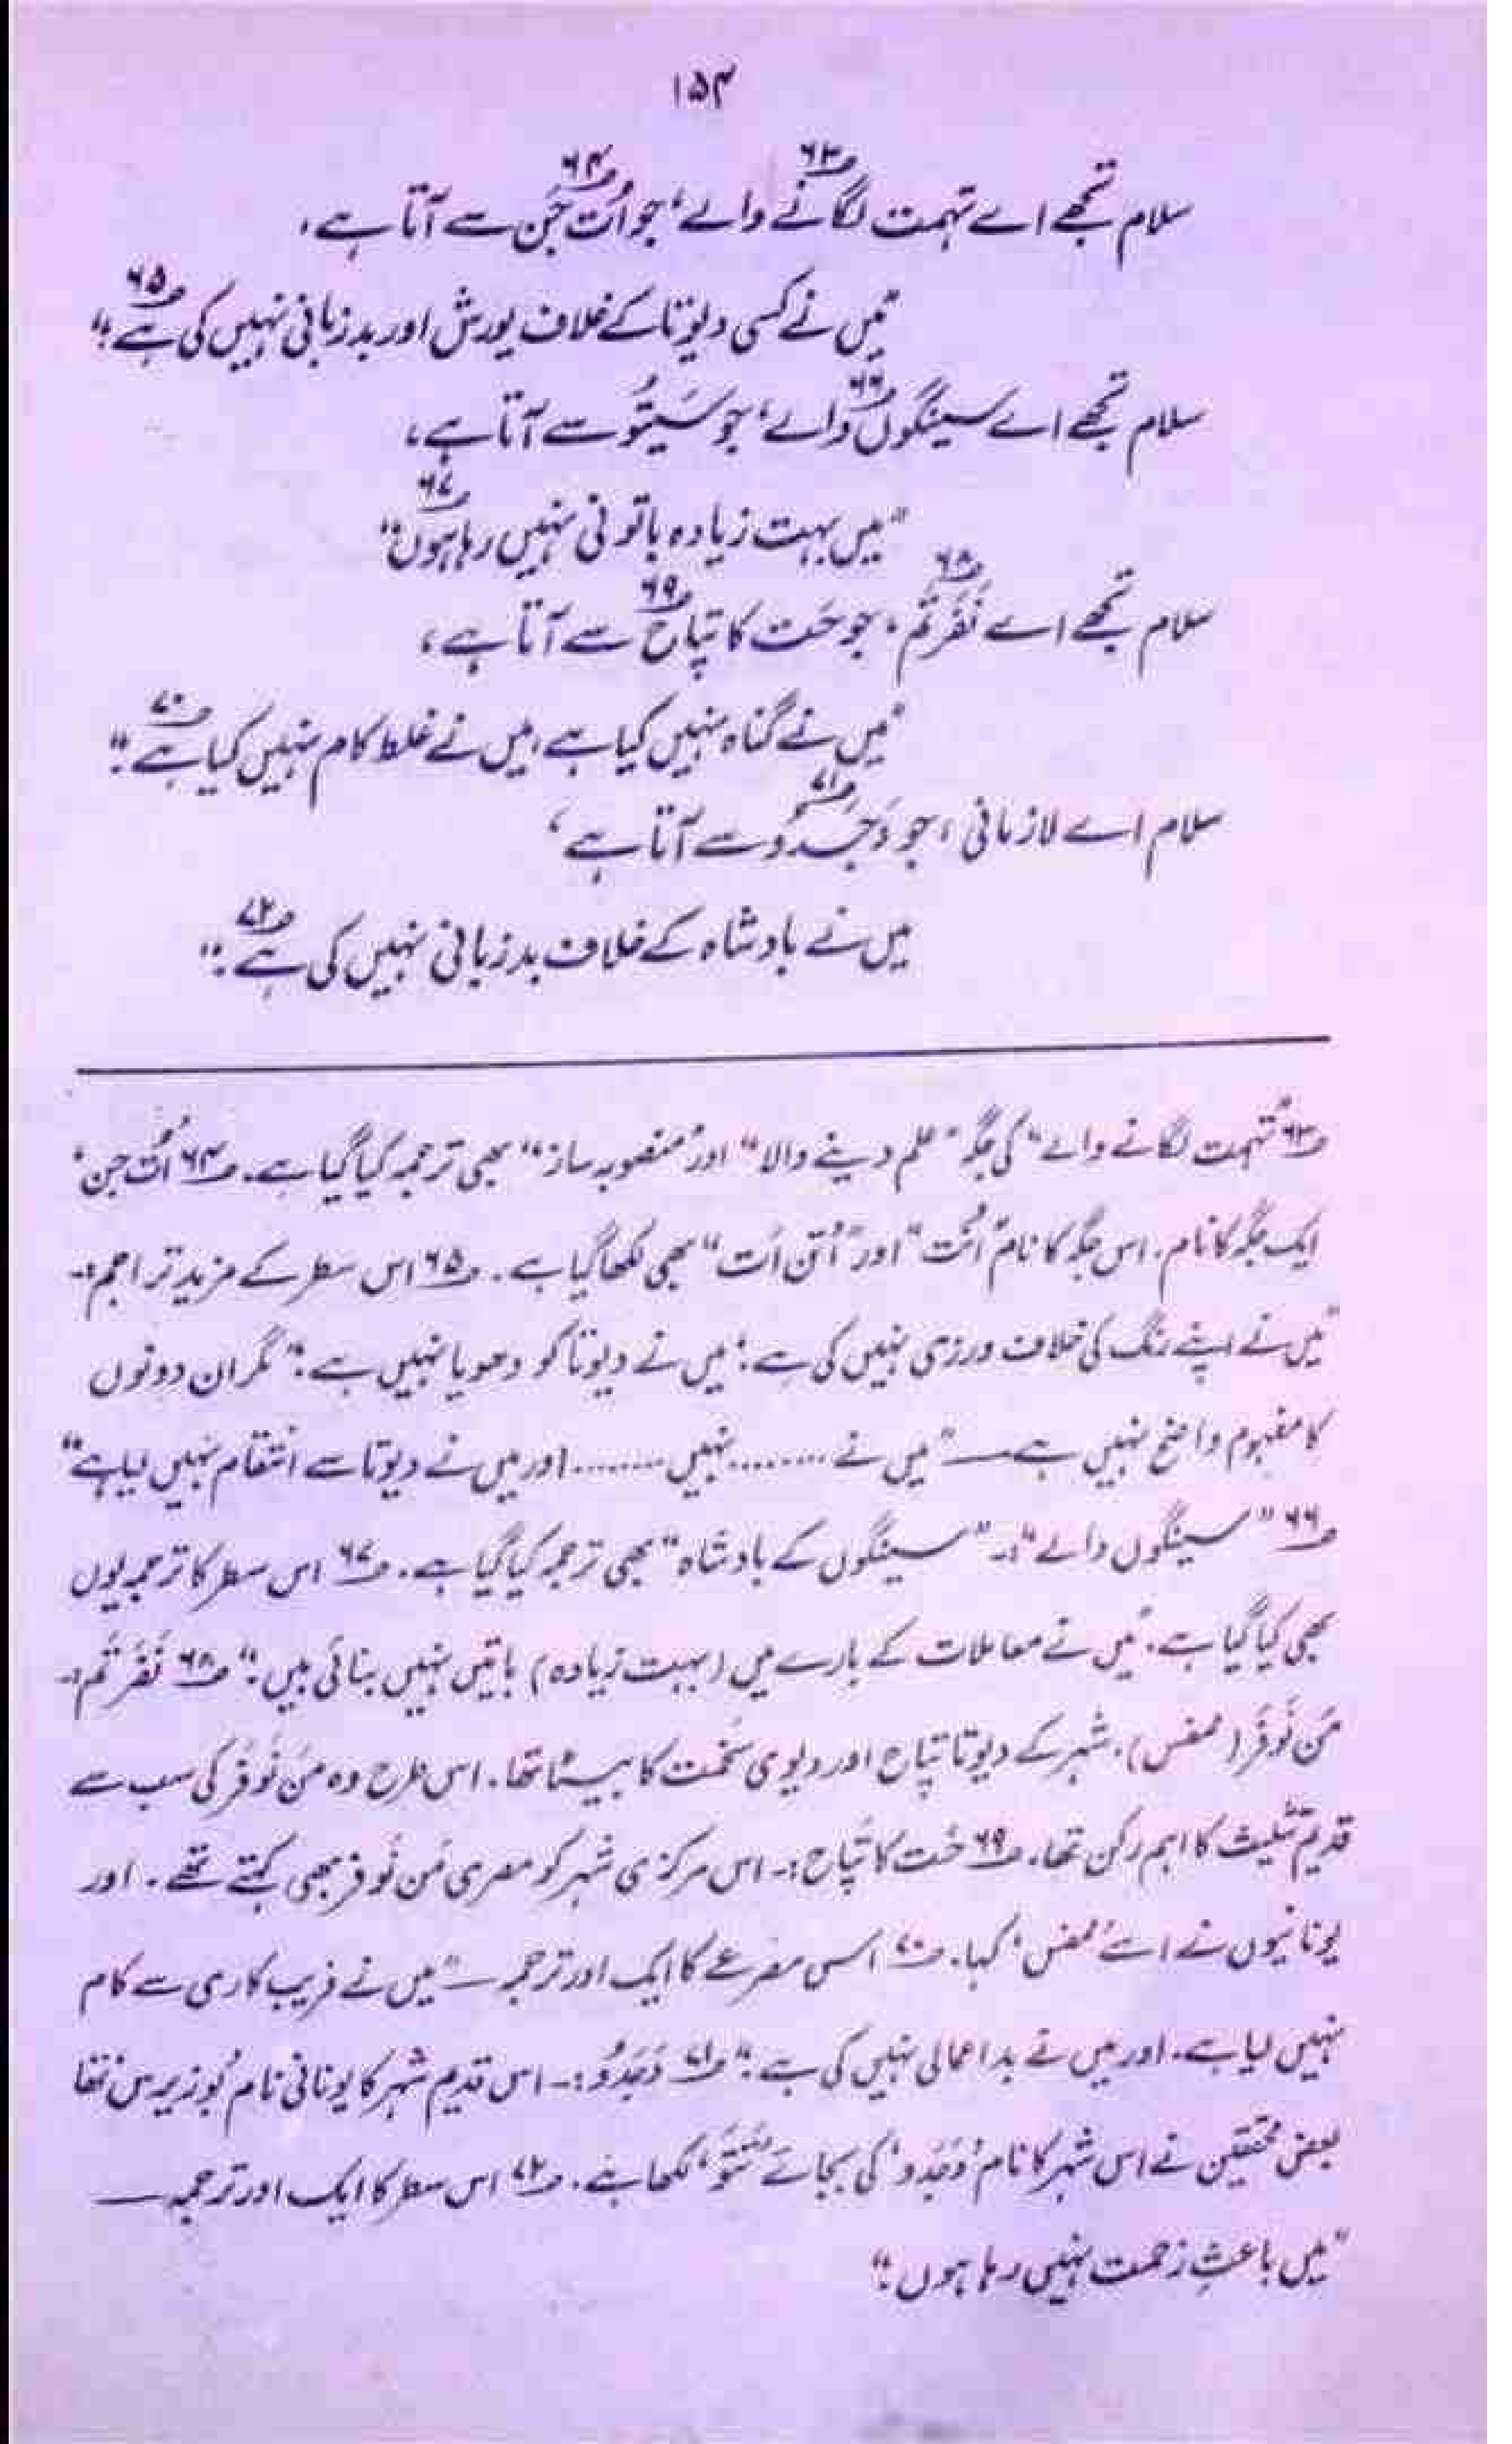 ۱۵۴
سلام تجھے اے تہمت لگانے؃۶۳ والے، جو اُت جَن؃۶۴ سے آتا ہے،
"میں نے کسی دیوتا کے خلاف یورش اور بدزبانی نہیں کی ہے؃۶۵"
سلام تجھے اے سینگوں؃۶۶ والے، جو سَیتُو سے آتا ہے،
"میں بہت زیادہ باتونی نہیں رہا ہوں؃۶۷"
سلام تجھے اے نَفَر تَم؃۶۸، جو حَت کا پتاح؃۶۹ سے آتا ہے،
"میں نے گناہ نہیں کیا ہے، میں نے غلط کام نہیں کیا ہے؃۷۰"
سلام اے لازمانی، جو دَجَدُو؃۷۱ سے آتا ہے،
میں نے بادشاہ کے خلاف بدزبانی نہیں کی ہے؃۷۲"
؃۶۳ "تہمت لگانے والے" کی جگہ "علم دینے والا" اور "منصوبہ ساز" بھی ترجمہ کیا گیا ہے۔ ؃۶۴ اُت جن،
ایک جگہ کا نام۔ اس جگہ کا نام "اُتت" اور "اُتن اَت" بھی لکھا گیا ہے۔ ؃۶۵ اس سطر کے مزید تراجم:۔
"میں نے اپنے رنگ کی خلاف ورزی نہیں کی ہے؛ میں نے دیوتا کو دھویا نہیں ہے۔" مگر ان دونوں
کا مفہوم واضح نہیں ہے — "میں نے ........ نہیں ........ اور میں نے دیوتا سے انتقام نہیں لیا ہے"
؃۶۶ "سینگوں والے":۔ "سینگوں کے بادشاہ" بھی ترجمہ کیا گیا ہے۔ ؃۶۷ اس سطر کا ترجمہ یوں
بھی کیا گیا ہے۔ "میں نے معاملات کے بارے میں (بہت زیادہ) باتیں نہیں بنائی ہیں۔" ؃۶۸ نَفَر تَم:۔
مَن نُوفَر (ممفس) شہر کے دیوتا پتاح اور دیوی سَخمت کا بیٹا تھا۔ اس طرح وہ مَن نُوفَر کی سب سے
قدیم تثلیث کا اہم رکن تھا۔ ؃۶۹ حَت کا پتاح:۔ اس مرکزی شہر کو مصری مَن نُوفَر بھی کہتے تھے۔ اور
یونانیوں نے اسے 'ممفس' کہا۔ ؃۷۰ اس مصرعے کا ایک اور ترجمہ — "میں نے فریب کاری سے کام
نہیں لیا ہے۔ اور میں نے بداعمالی نہیں کی ہے۔" ؃۷۱ دَجَدُو:۔ اس قدیم شہر کا یونانی نام بُوزیرس تھا
بعض محققین نے اس شہر کا نام 'دَجَدُو' کی بجائے لکھا ہے۔ ؃۷۲ اس سطر کا ایک اور ترجمہ —
"میں باعثِ زحمت نہیں رہا ہوں۔"